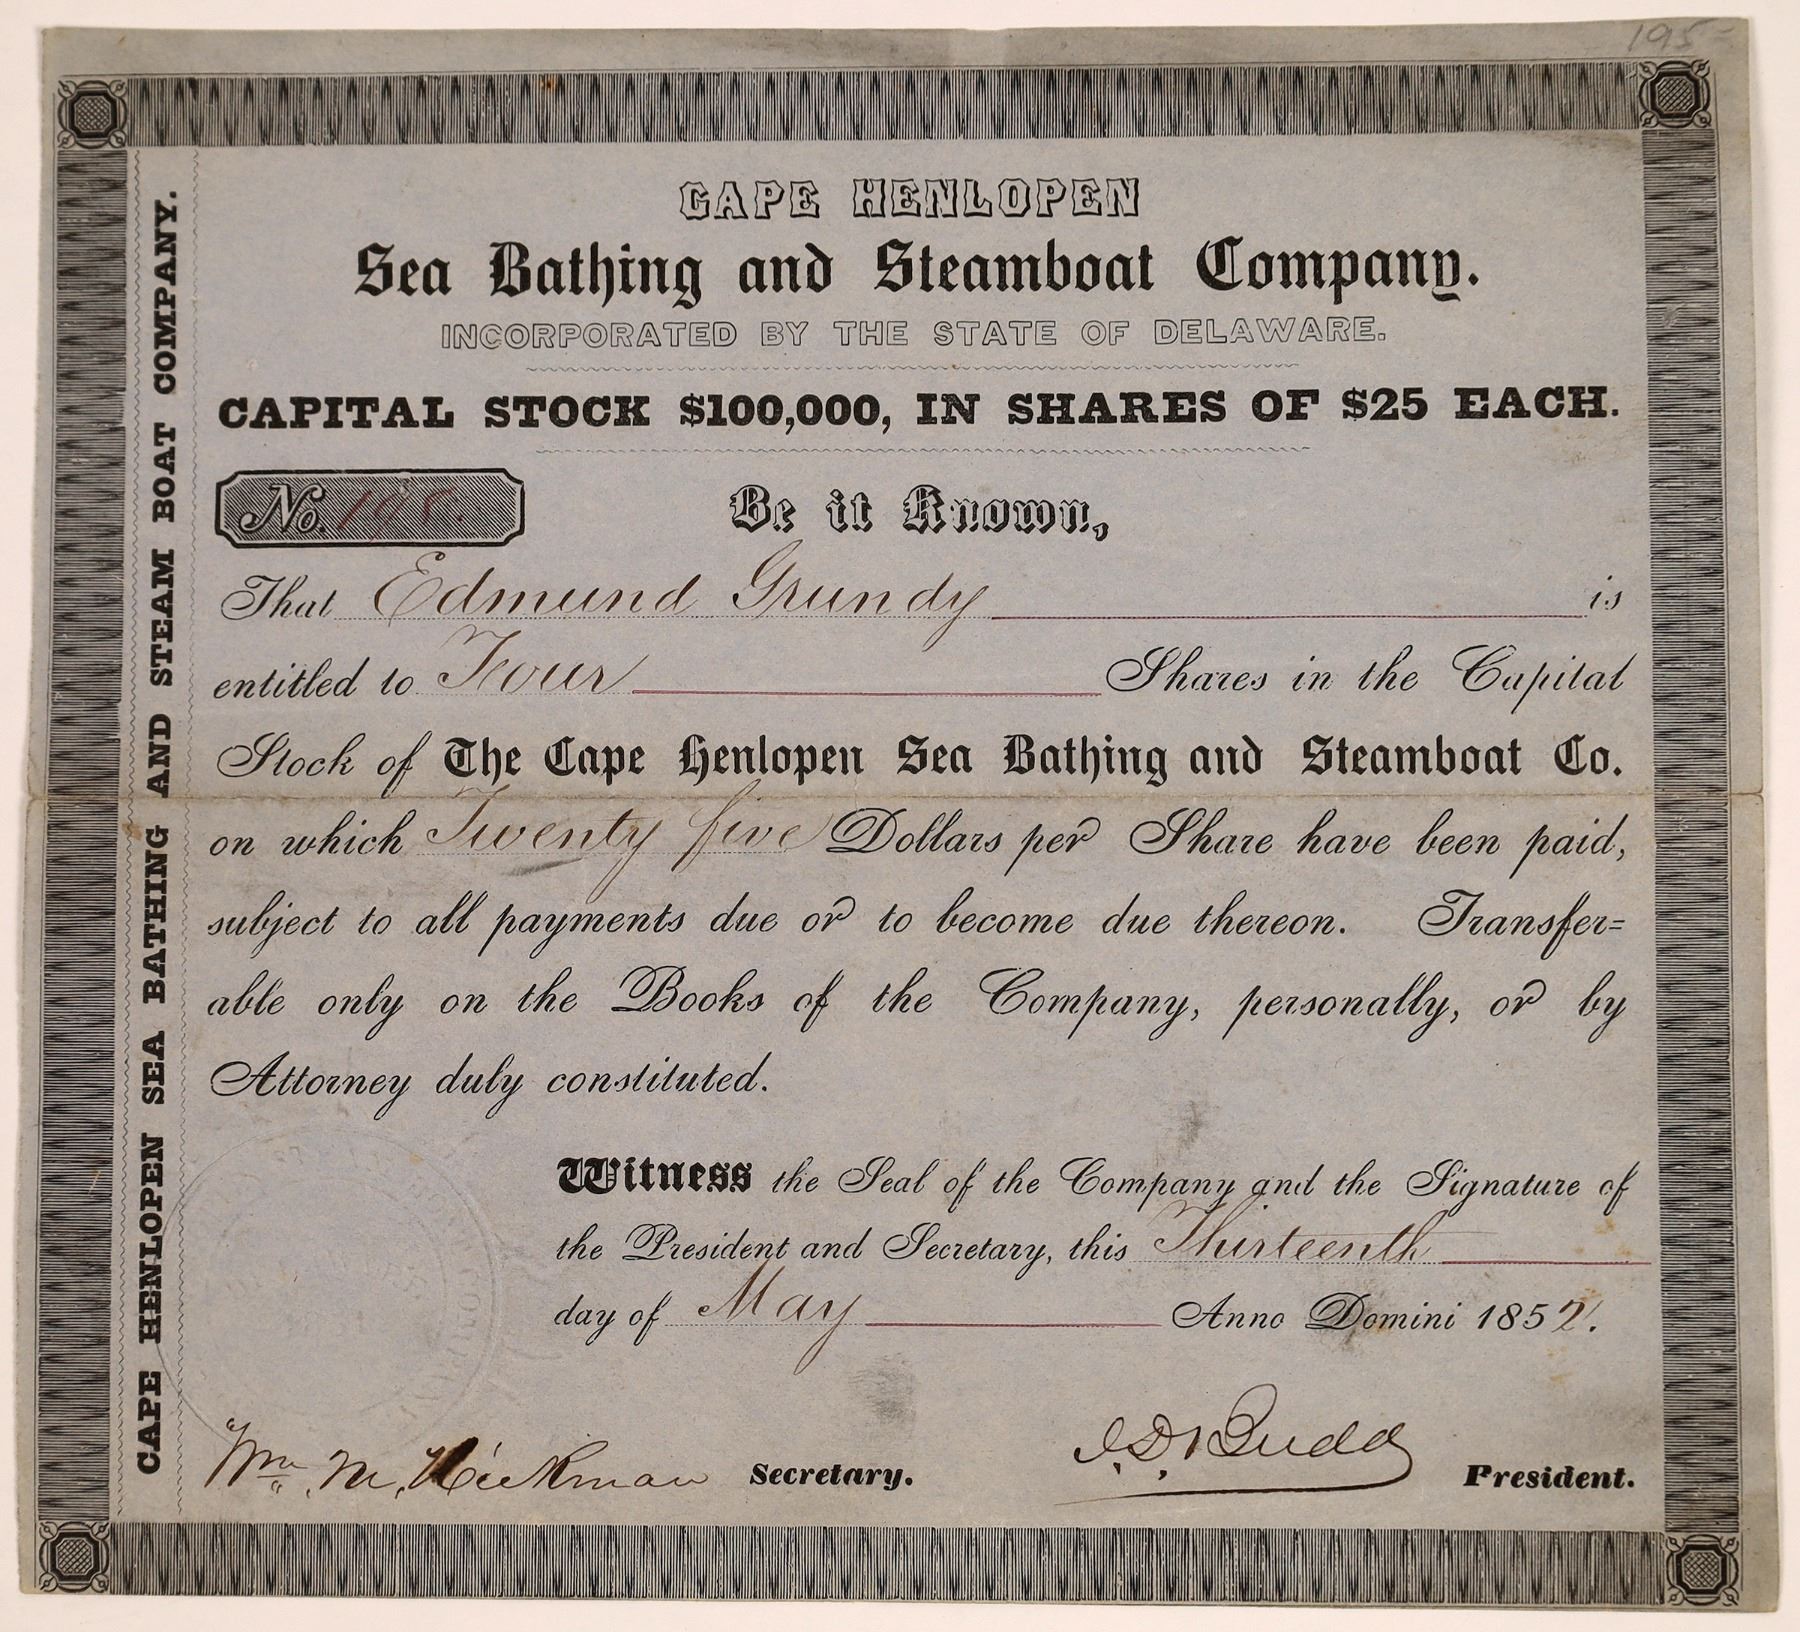 195-
CAPE HENLOPEN SEA BATHING AND STEAM BOAT COMPANY.
CAPE HENLOPEN
Sea Bathing and Steamboat Company.
INCORPORATED BY THE STATE OF DELAWARE.
CAPITAL STOCK $100,000, IN SHARES OF $25 EACH.
No. 198.
Be it Known,
That Edmund Grundy is
entitled to Four Shares in the Capital
Stock of The Cape Henlopen Sea Bathing and Steamboat Co.
on which Twenty five Dollars per Share have been paid,
subject to all payments due or to become due thereon. Transfer=
able only on the Books of the Company, personally, or by
Attorney duly constituted.
Witness the Seal of the Company and the Signature of
the President and Secretary, this Thirteenth
day of May Anno Domini 1852.
Wm. M. Hickman Secretary.
I.D. Budd President.